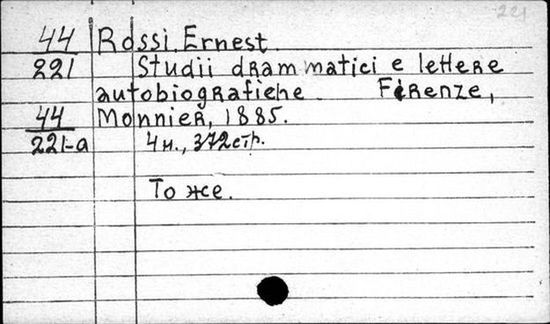 221
44 Rossi Ernest
221 Studii drammatici e lettere
autobiografiche Firenze,
44 Monnier, 1885.
221-a 4н., 372стр.
То же.